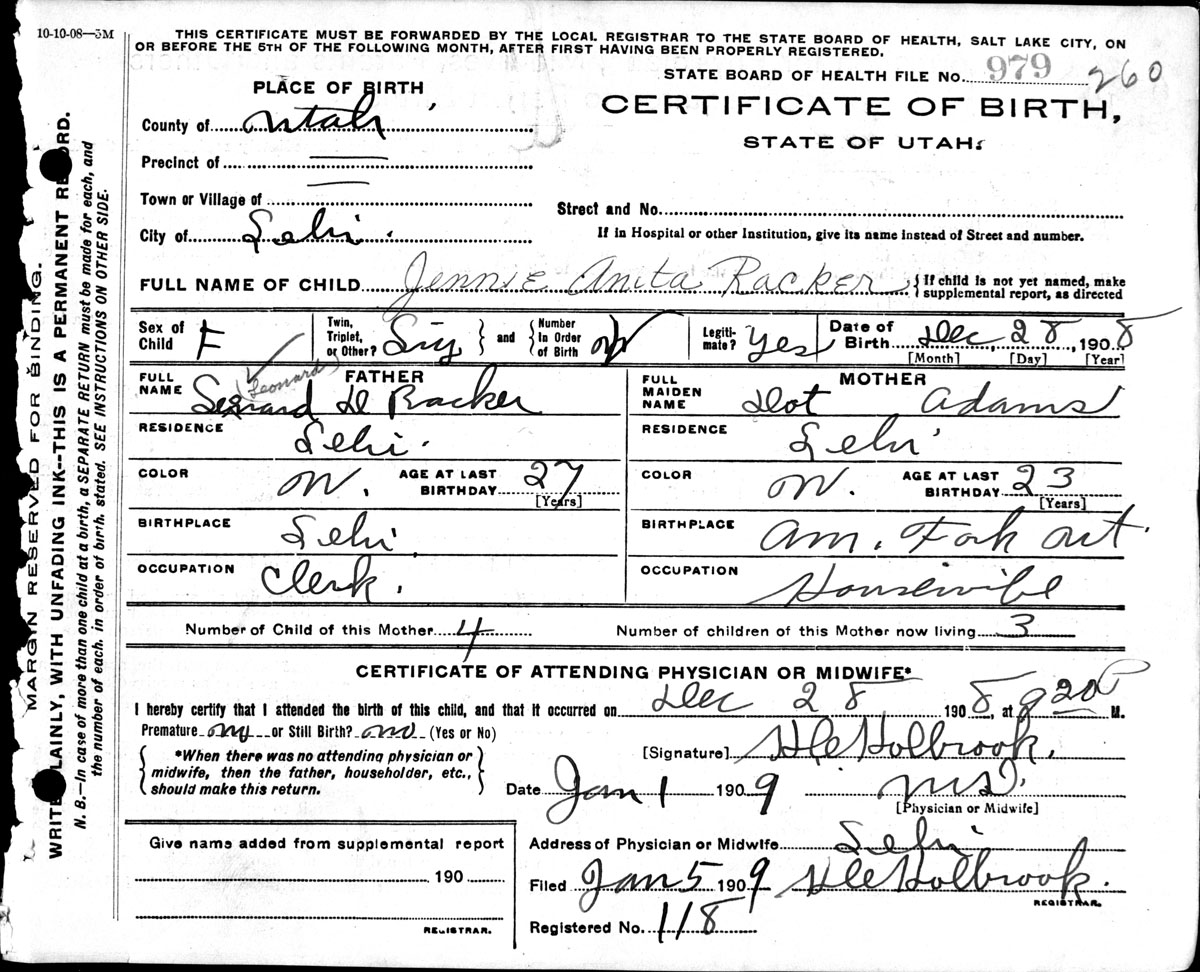 10-10-08—3M
THIS CERTIFICATE MUST BE FORWARDED BY THE LOCAL REGISTRAR TO THE STATE BOARD OF HEALTH, SALT LAKE CITY, ON
OR BEFORE THE 5TH OF THE FOLLOWING MONTH, AFTER FIRST HAVING BEEN PROPERLY REGISTERED.
STATE BOARD OF HEALTH FILE No. 979 260
CERTIFICATE OF BIRTH,
STATE OF UTAH.
PLACE OF BIRTH
County of Utah
Precinct of —
Town or Village of —
City of Lehi.
Street and No.
If in Hospital or other Institution, give its name instead of Street and number.
FULL NAME OF CHILD Jennie Anita Racker {If child is not yet named, make supplemental report, as directed
Sex of Child F
Twin, Triplet, or Other? Sig } and { Number In Order of Birth
Legiti-mate? Yes
Date of Birth Dec 28, 1908
[Month] [Day] [Year]
FATHER
Leonard
FULL NAME D Racker
RESIDENCE Lehi.
COLOR W. AGE AT LAST BIRTHDAY 27 [Years]
BIRTHPLACE Lehi.
OCCUPATION Clerk.
MOTHER
FULL MAIDEN NAME Dot Adams
RESIDENCE Lehi
COLOR W. AGE AT LAST BIRTHDAY 23 [Years]
BIRTHPLACE Am. Fork Ut.
OCCUPATION Housewife
Number of Child of this Mother 4
Number of children of this Mother now living 3
CERTIFICATE OF ATTENDING PHYSICIAN OR MIDWIFE*
I hereby certify that I attended the birth of this child, and that it occurred on Dec 28 1908, at 920 P M.
Premature no or Still Birth? no (Yes or No)
{*When there was no attending physician or
midwife, then the father, householder, etc.,
should make this return.}
[Signature] Holbrook.
Date Jan 1 1909 M.D.
[Physician or Midwife]
Give name added from supplemental report
190
REGISTRAR.
Address of Physician or Midwife Lehi
Filed Jan 5 1909 Holbrook.
REGISTRAR.
Registered No. 118
MARGIN RESERVED FOR BINDING.
WRITE PLAINLY, WITH UNFADING INK—THIS IS A PERMANENT RECORD.
N. B.—In case of more than one child at a birth, a SEPARATE RETURN must be made for each, and
the number of each, in order of birth, stated. SEE INSTRUCTIONS ON OTHER SIDE.